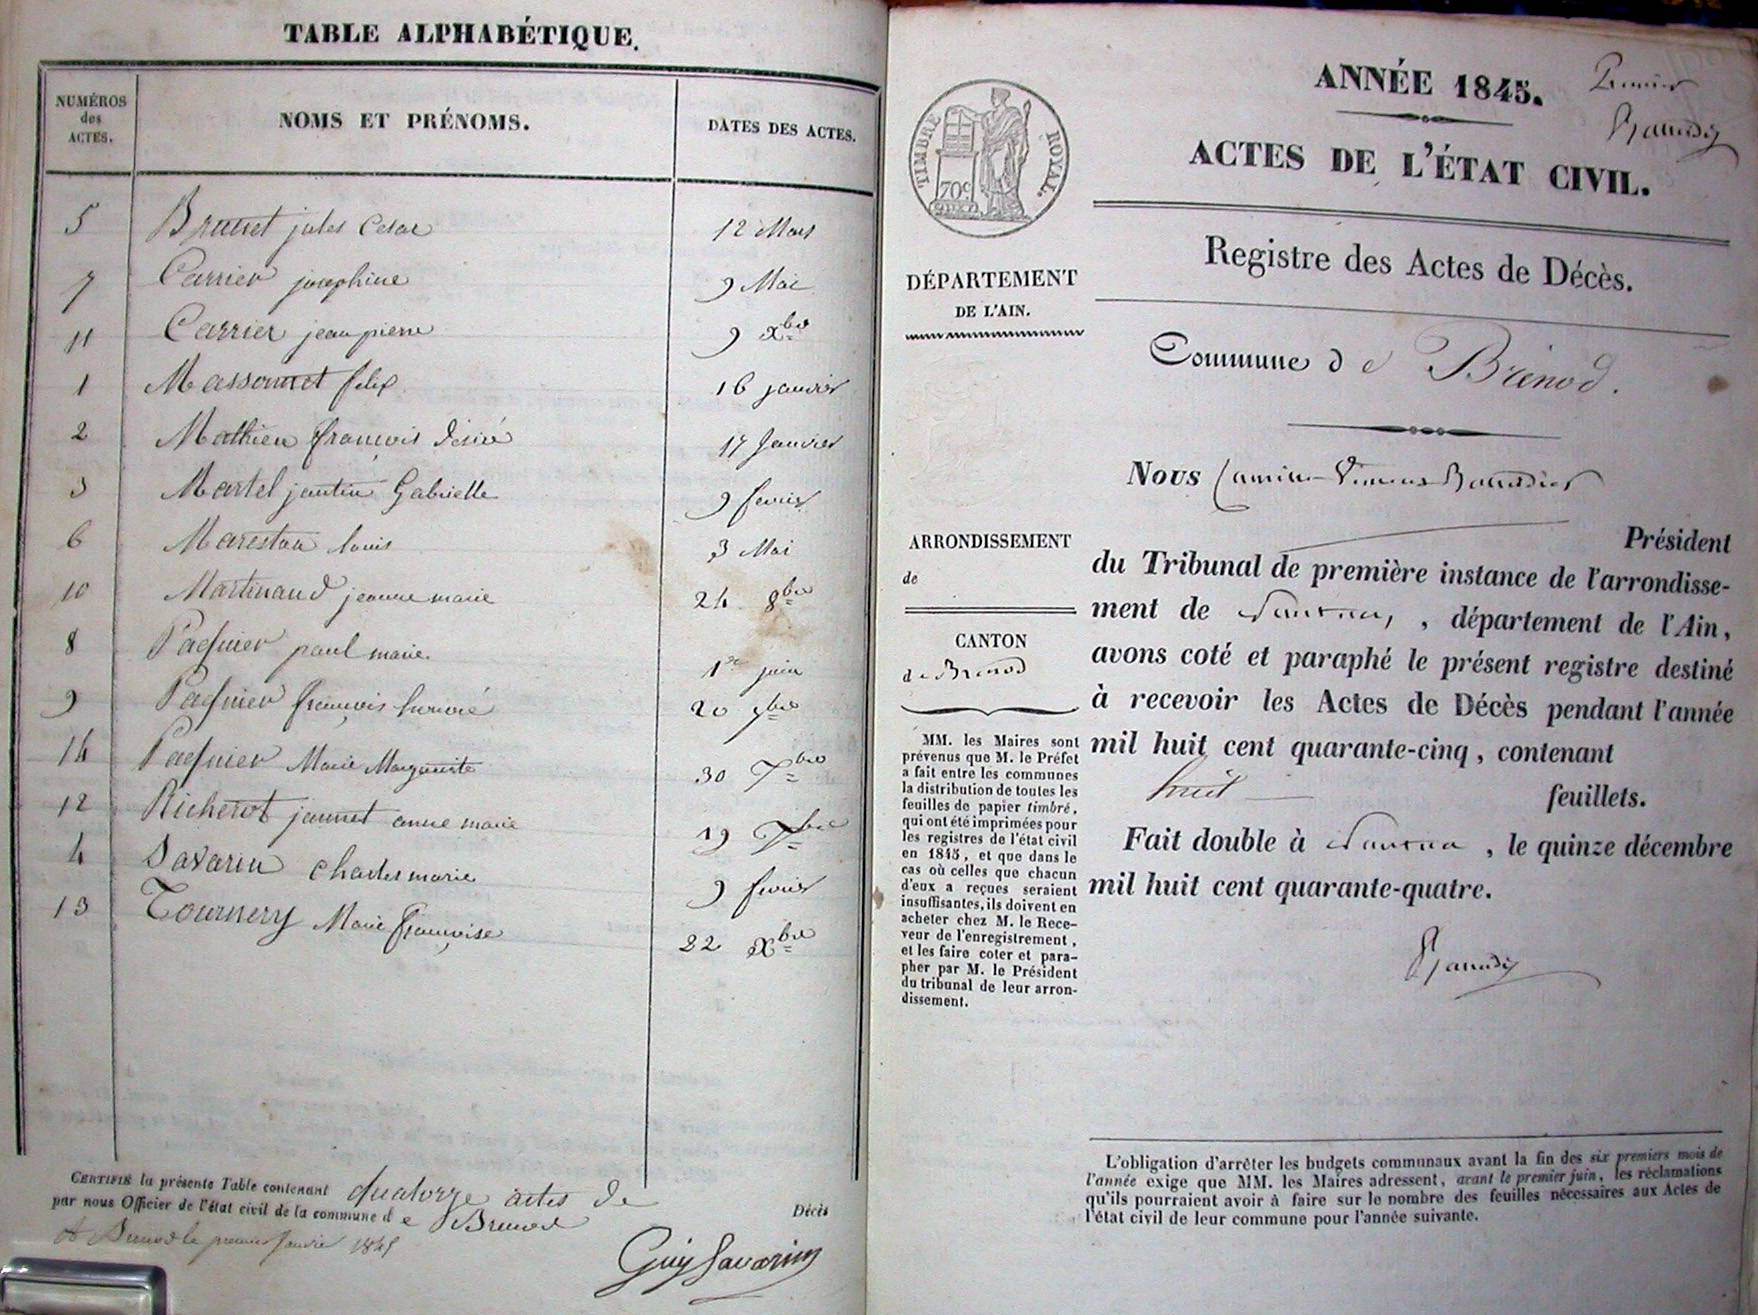 TABLE ALPHABÉTIQUE.
NUMÉROS des ACTES.
NOMS ET PRÉNOMS.
DATES DES ACTES.
5 Brunet jules Cesar 12 Mars
7 Carrier josephine 9 Mai
11 Carrier jean pierre 9 Xbre
1 Massonnet felix 16 janvier
2 Mathieu françois désiré 17 Janvier
3 Martel Gabrielle 9 fevrier
6 louis 3 Mai
10 Martinand jeanne marie 24 8bre
8 Pagnier paul marie 1er juin
9 Pagnier françois honoré 20
14 Pagnier Marie Marguerite 30
12 Richerot jeannet anne marie 19
4 Savarin charles marie 9 fevrier
13 Tournery Marie françoise 22 Xbre
CERTIFIÉ la présente Table contenant quatorze actes de Décès
par nous Officier de l'état civil de la commune d e Brenod
A Brenod le premier Janvier
Guy Savarin
ANNÉE 1845.
Premier
ACTES DE L'ÉTAT CIVIL.
TIMBRE ROYAL.
70c
Registre des Actes de Décès.
DÉPARTEMENT
DE L'AIN.
Commune d e Brénod.
Nous
ARRONDISSEMENT
de
CANTON
de Brénod
MM. les Maires sont
prévenus que M. le Préfet
a fait entre les communes
la distribution de toutes les
feuilles de papier timbré,
qui ont été imprimées pour
les registres de l'état civil
en 1845, et que dans le
cas où celles que chacun
d'eux a reçues seraient
insuffisantes, ils doivent en
acheter chez M. le Rece-
veur de l'enregistrement,
et les faire coter et para-
pher par M. le Président
du tribunal de leur arron-
dissement.
Président
du Tribunal de première instance de l'arrondisse-
ment de Nantua, , département de l'Ain,
avons coté et paraphé le présent registre destiné
à recevoir les Actes de Décès pendant l'année
mil huit cent quarante-cinq, contenant
huit feuillets.
Fait double à Nantua , le quinze décembre
mil huit cent quarante-quatre.
L'obligation d'arrêter les budgets communaux avant la fin des six premiers mois de
l'année exige que MM. les Maires adressent, avant le premier juin, les réclamations
qu'ils pourraient avoir à faire sur le nombre des feuilles nécessaires aux Actes de
l'état civil de leur commune pour l'année suivante.